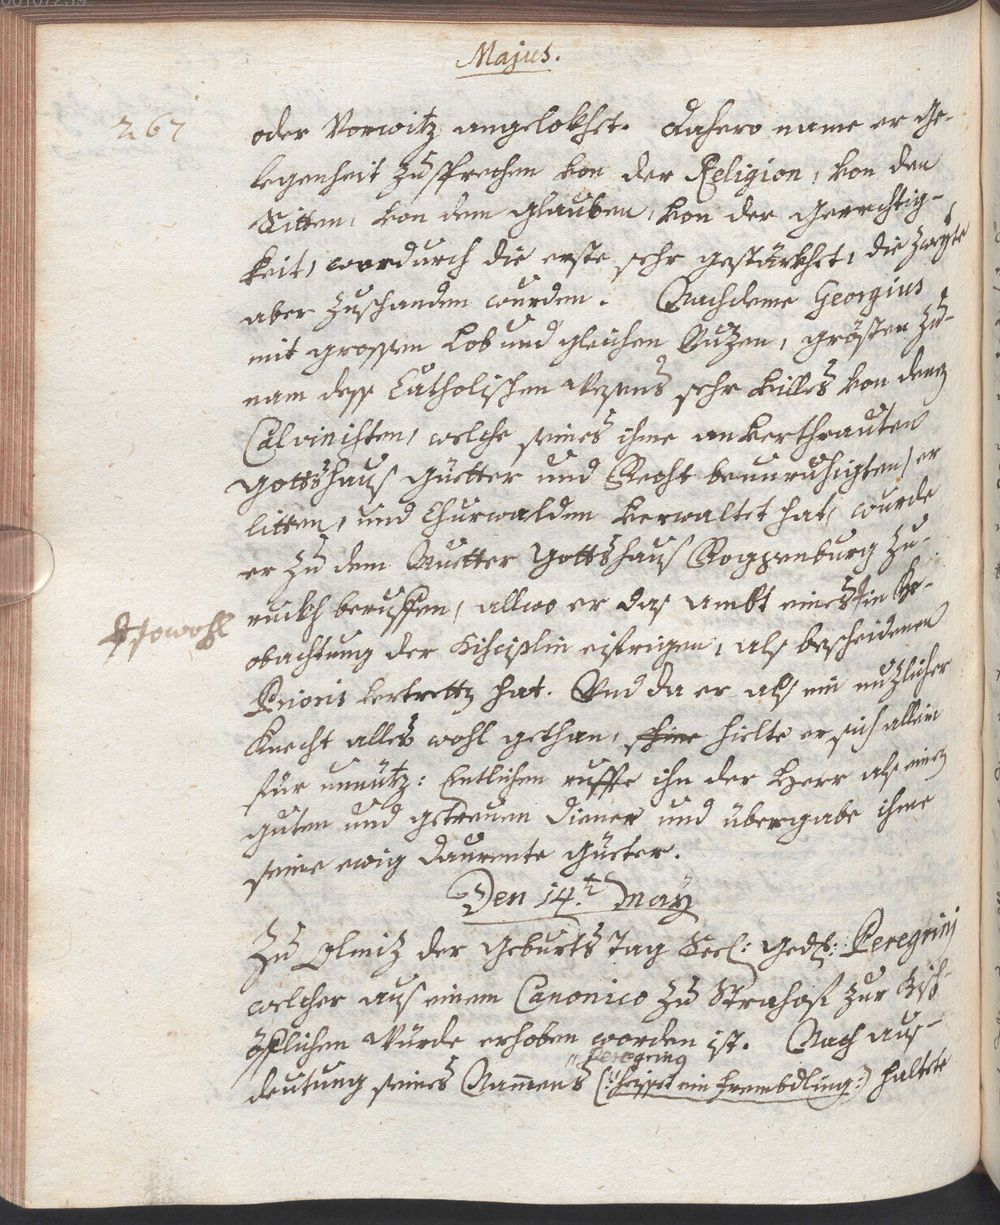 Majus.
267
oder Vorwitz angelokhet. Dahero name er Ge-
legenheit zu sprechen von der Religion, von den
Sitten, von dem glauben, von der gerechtig-
keit, wordurch die erste sehr gestärkhet, die zweyte
aber zuschanden wurden. Nachdeme Georgius
mit grossem Lob und gleichen Nuzen, grösten zu-
nam dess Catholischen Wesens sehr villes von denen
Calvinisten, welche seines ihme anverthrauten
Gottshaus güetter und Recht beunruhigten, er
litten, und Churwalden verwaltet hat, wurde
er zu dem Muetter Gottshaus Roggenburg zu-
ruckh beruffen, allwo er das ambt eines in Be-
#sowohl
obachtung der Disciplin eifrigen, als bescheidenen
Prioris vertretten hat. Und da er als ein nuzlicher
Knecht alles wohl gethan, hielte er sich allein
für unnütz: Entlichen ruffte ihn der Herr als einen
guten und getreuen diener und übergabe ihme
seine ewig daurente güeter.
Den 14.t May
Zu Olmitz der Geburts Tag Seel: Ged: Peregrini
welcher aus einem Canonico zu Strahof zur Bisch-
öflichen Würde erhoben worden ist. Nach aus-
Peregrinq
deutung seines Nammens (: heisset ein frembdling:) haltete